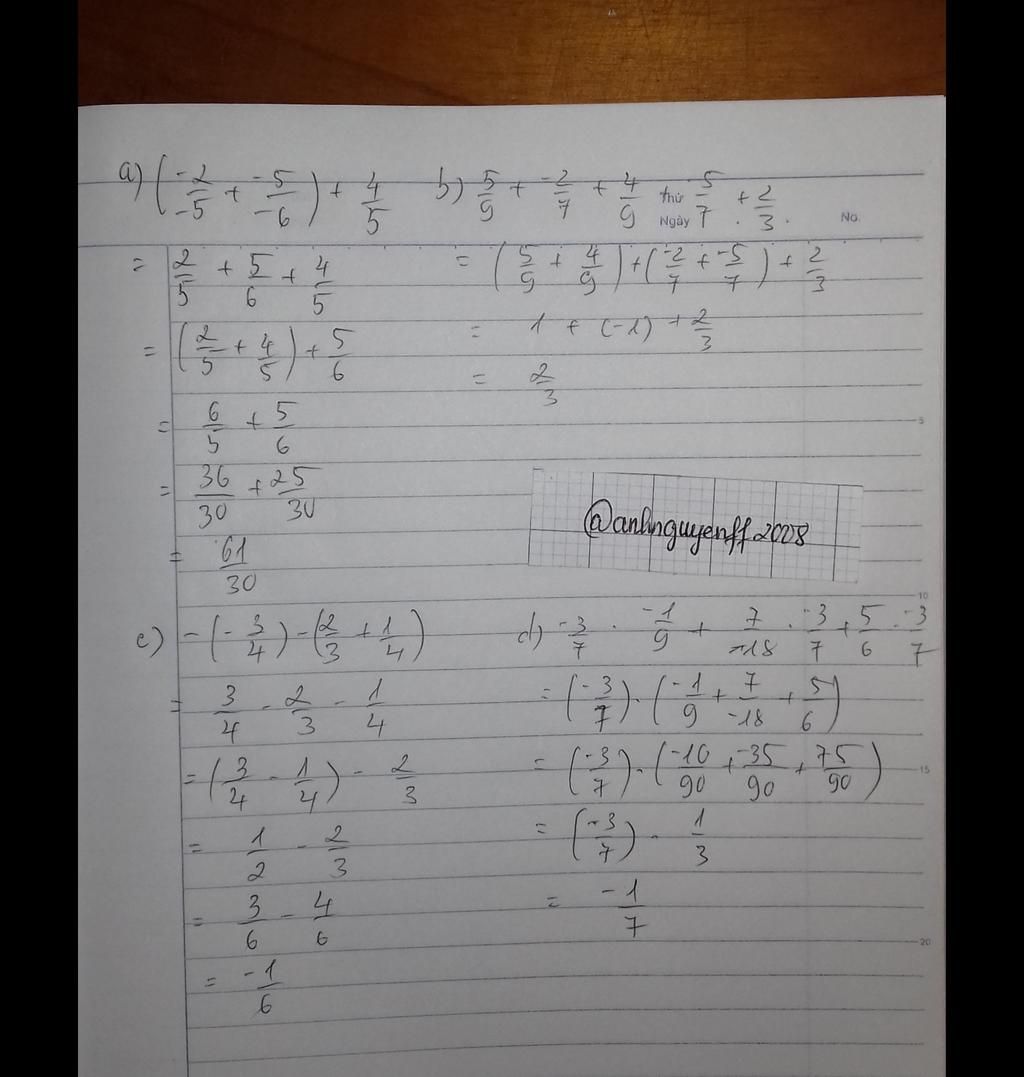 a) (-2/-5 + -5/-6) + 4/5
= 2/5 + 5/6 + 4/5
= (2/5 + 4/5) + 5/6
= 6/5 + 5/6
= 36/30 + 25/30
= 61/30
b) 5/9 + -2/7 + 4/9 Thứ Ngày 5/7 + 2/3. No.
= (5/9 + 4/9) + (-2/7 + -5/7) + 2/3
= 1 + (-1) + 2/3
= 2/3
5
@anhnguyenff2008
10
c) -(-3/4) - (2/3 + 1/4)
= 3/4 - 2/3 - 1/4
= (3/4 - 1/4) - 2/3
= 1/2 - 2/3
= 3/6 - 4/6
= -1/6
d) -3/7 . -1/9 + 7/-18 . -3/7 + 5/6 . -3/7
= (-3/7) . (-1/9 + 7/-18 + 5/6)
= (-3/7) . (-10/90 + -35/90 + 75/90)
15
= (-3/7) . 1/3
= -1/7
20